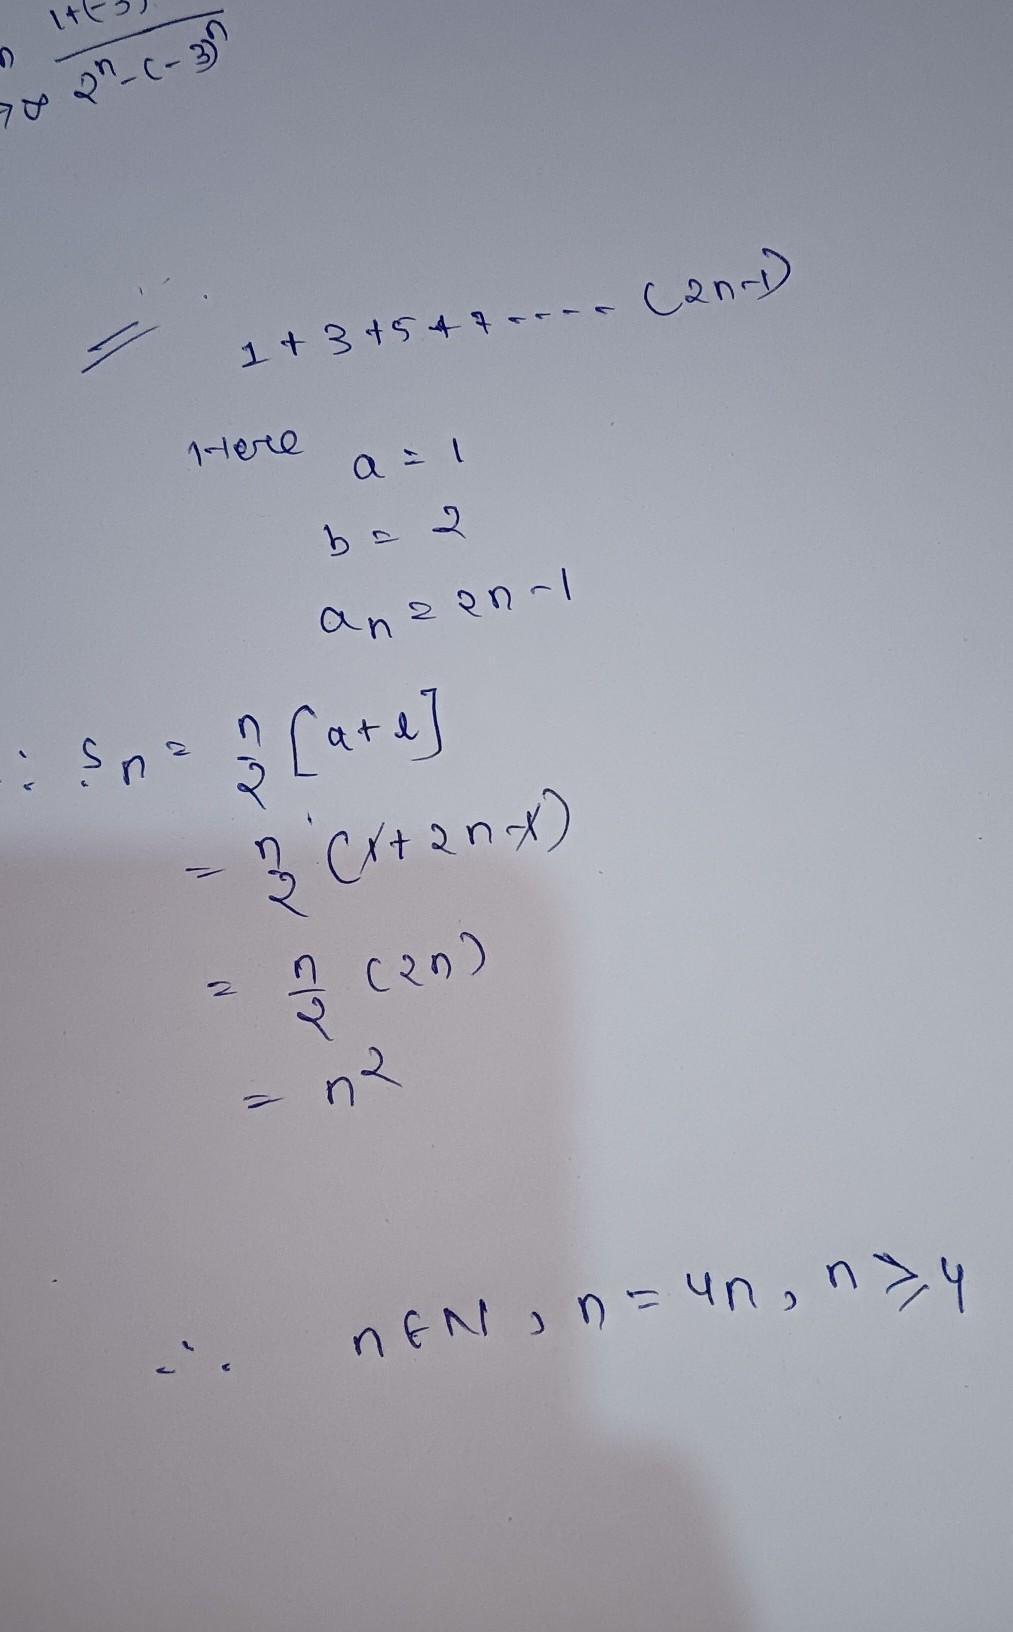 1+(-3)
2ⁿ-(-3)ⁿ
→∞
1+3+5+7----- (2n-1)
Here a = 1
b = 2
aₙ = 2n-1
∴ Sₙ = n/2 [a+l]
= n/2 (1+2n-1)
= n/2 (2n)
= n²
∴ n∈N, n=4n, n⩾4